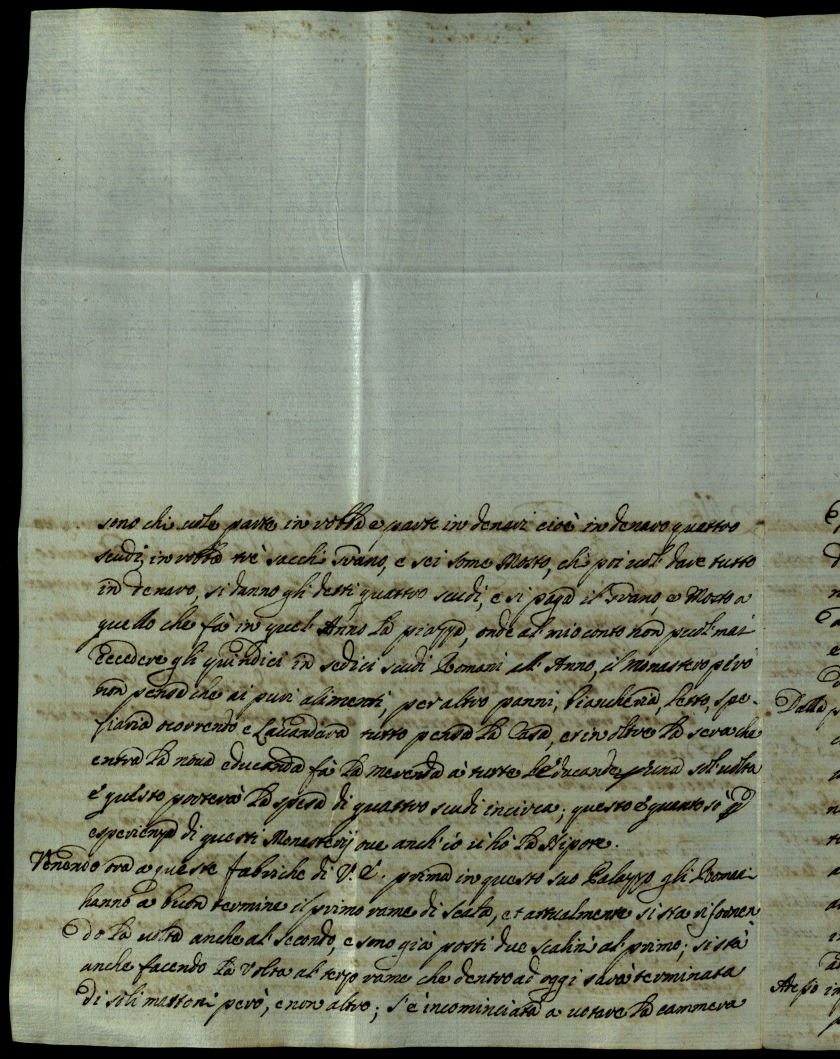 sono chi uole parte in robba e parte in denari cioè in denaro quattro
scudi, in robba trè sacchi Grano, e sei some Mosto, chi poi uol dare tutto
in denaro, si danno gli detti quattro scudi, e si paga il Grano, e Mosto a
quello che fà in quell' Anno la piazza, onde al mio conto non puol mai
eccedere gli quindici in sedici scudi Romani all' Anno, il Monastero però
non pensa che ai puri alimenti, per altro panni, biancheria letto, spe-
ziaria ocorrendo e Lauandara tutto pensa la Casa, et in oltre la sera che
entra la noua educanda fà la merenda à tutte le educande una sol uolta
e questo porterà la spesa di quattro scudi incirca; questo è quanto sò p
esperienza di questi Monasterij oue anch' io ui hò la Nipote.
Venendo ora a queste fabriche di V. E. prima in questo suo Palazzo gli
hanno a buon termine il primo rame di scala, et attualmente si sta
do la uolta anche al secondo, e sono già posti due scalini al primo; si stà
anche facendo la Volta al terzo rame che dentro ad oggi sarà terminata
di soli mattoni però, e non altro; s' è incominciata a uotare la cammera